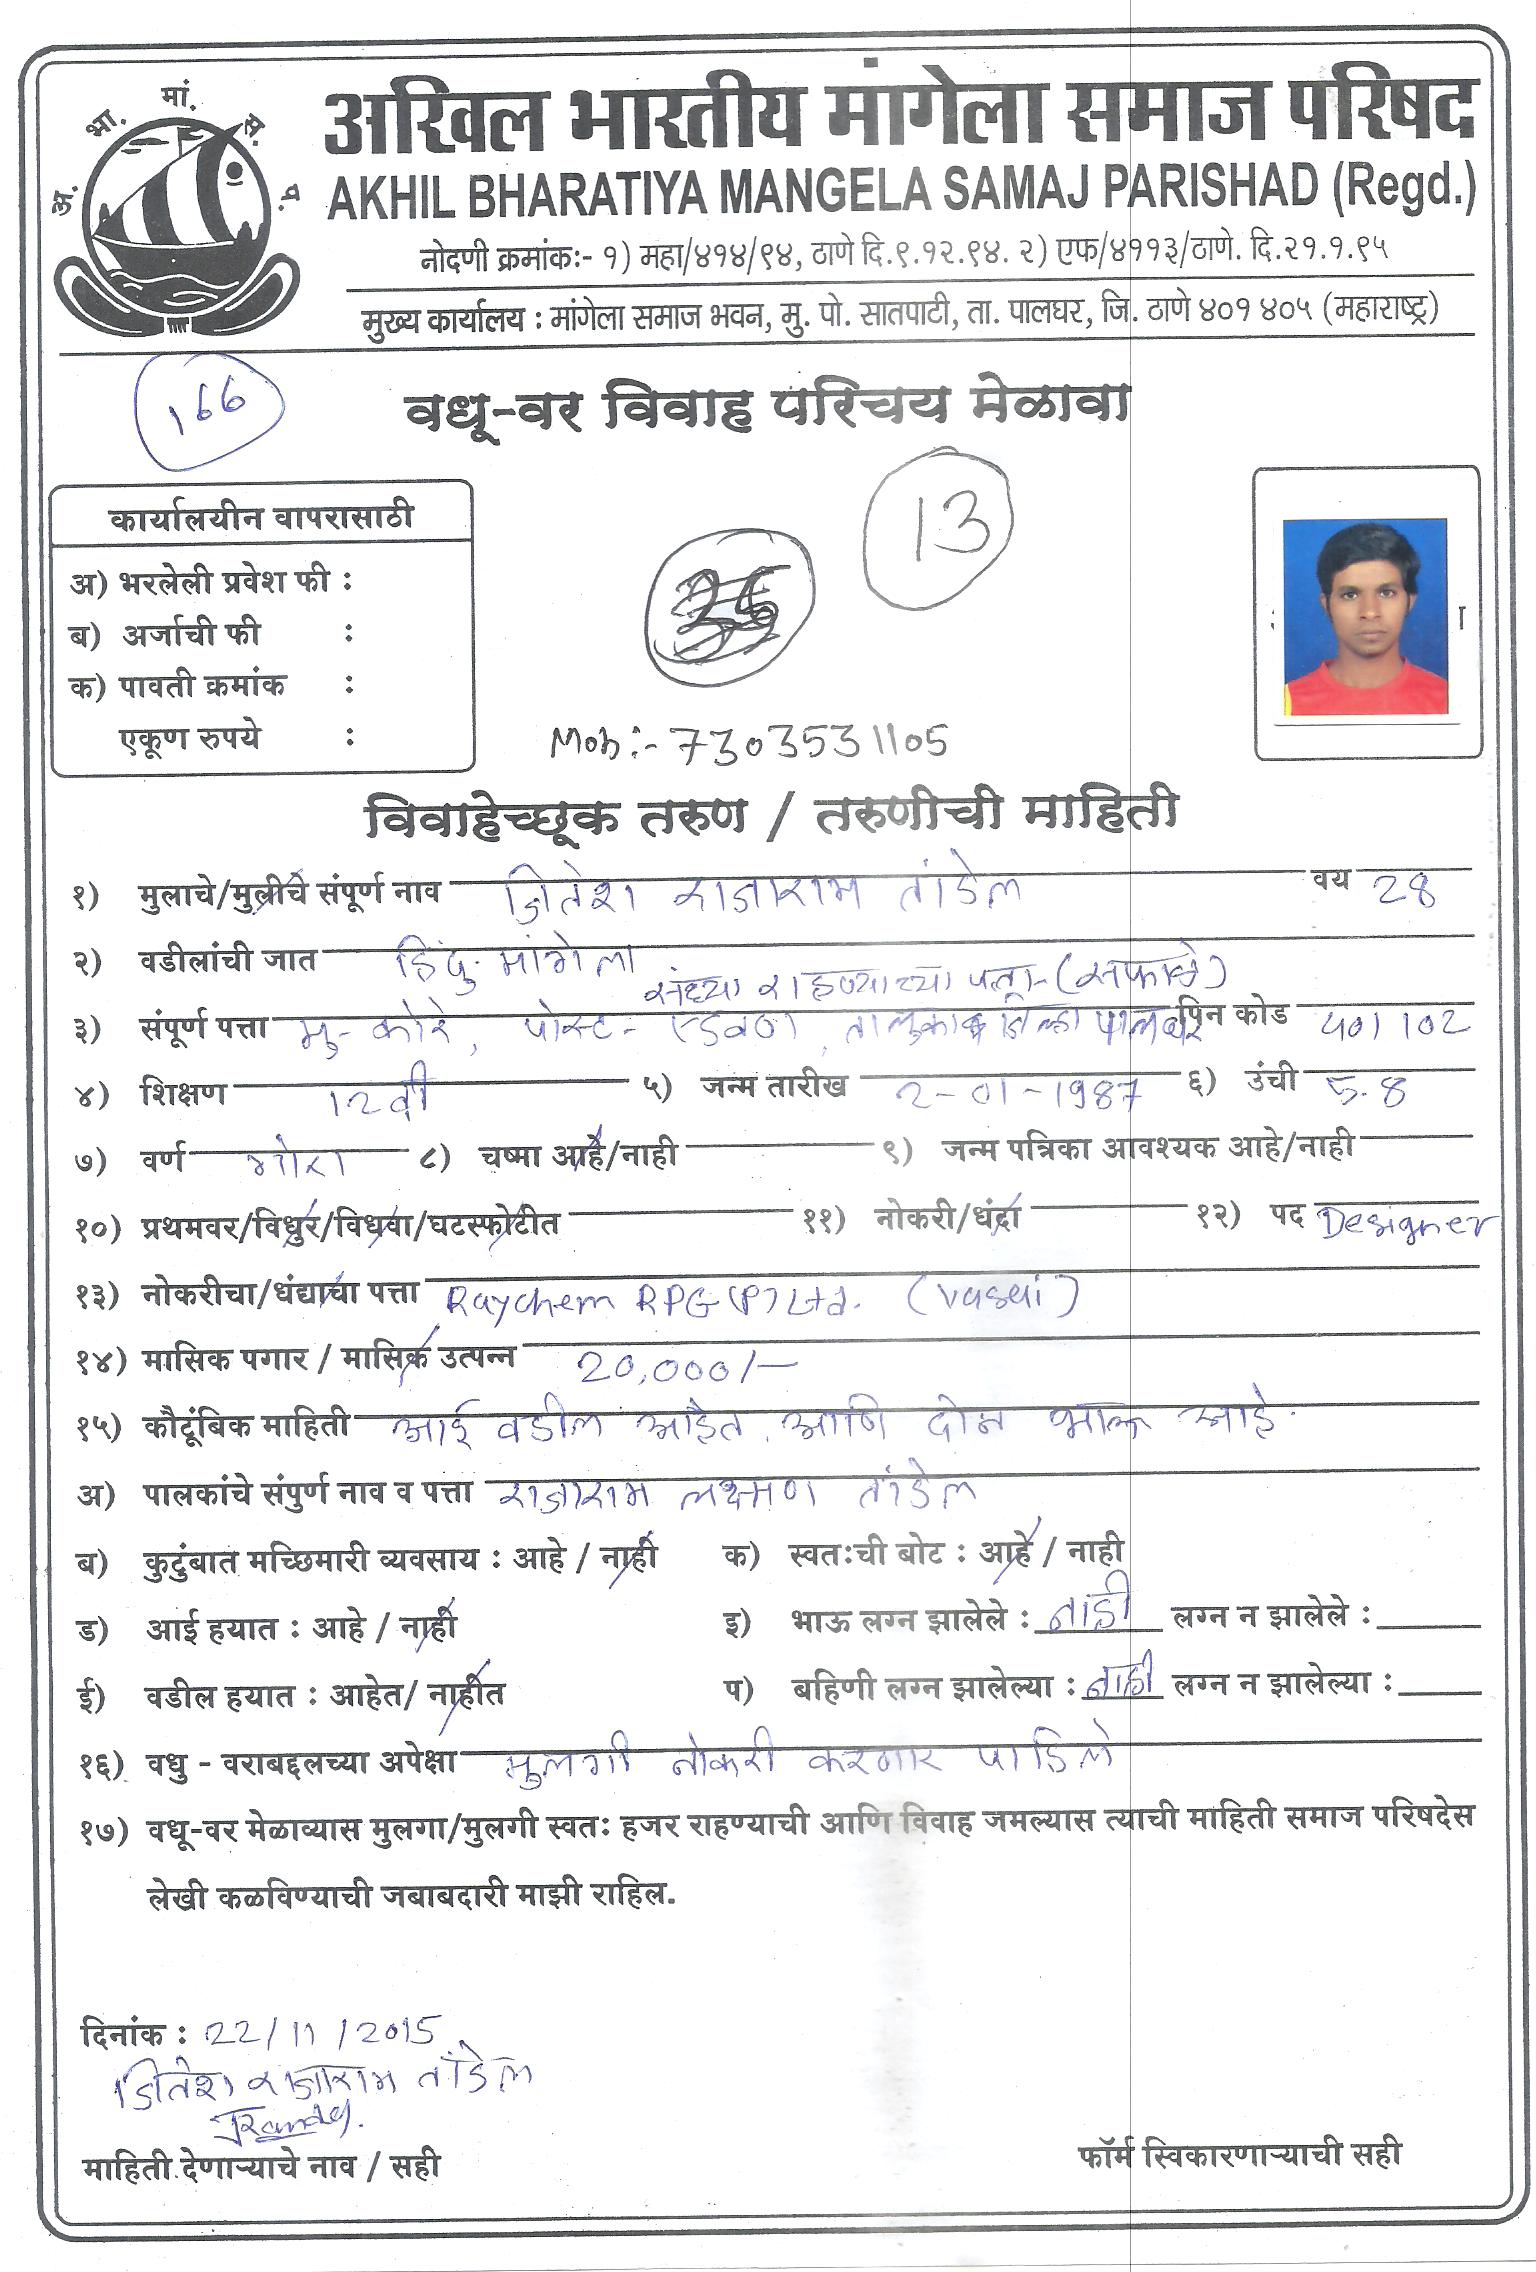 अ. भा. मां. स. प.
अखिल भारतीय मांगेला समाज परिषद
AKHIL BHARATIYA MANGELA SAMAJ PARISHAD (Regd.)
नोदणी क्रमांकः- १) महा/४१४/९४, ठाणे दि.९.१२.९४. २) एफ/४११३/ठाणे. दि.२१.१.९५
मुख्य कार्यालय : मांगेला समाज भवन, मु. पो. सातपाटी, ता. पालघर, जि. ठाणे ४०१ ४०५ (महाराष्ट्र)
166
वधू-वर विवाह परिचय मेळावा
13
कार्यालयीन वापरासाठी
अ) भरलेली प्रवेश फी :
ब) अर्जाची फी :
क) पावती क्रमांक :
एकूण रुपये :
Mob:- 7303531105
विवाहेच्छूक तरुण / तरुणीची माहिती
१) मुलाचे/मुलीचे संपूर्ण नाव जितेश राजाराम तांडेल वय 28
२) वडीलांची जात हिंदु. मांगेला
संध्या राहण्याच्या पत्ता- (सफाळे)
३) संपूर्ण पत्ता मु- कोरे, पोस्ट- एडवण, तालुका व जिल्हा पालघर पिन कोड 401102
४) शिक्षण 12वी ५) जन्म तारीख 2-01-1987 ६) उंची 5.8
७) वर्ण गोरा ८) चष्मा आहे/नाही ९) जन्म पत्रिका आवश्यक आहे/नाही
१०) प्रथमवर/विधुर/विधवा/घटस्फोटीत ११) नोकरी/धंदा १२) पद Designer
१३) नोकरीचा/धंद्याचा पत्ता Raychem RPG (P) Ltd. (Vasai)
१४) मासिक पगार / मासिक उत्पन्न 20,000/-
१५) कौटूंबिक माहिती आई वडील आहेत. आणि दोन भाऊ आहे.
अ) पालकांचे संपुर्ण नाव व पत्ता राजाराम लक्ष्मण तांडेल
ब) कुटुंबात मच्छिमारी व्यवसाय : आहे / नाही क) स्वतःची बोट : आहे / नाही
ड) आई हयात : आहे / नाही इ) भाऊ लग्न झालेले : नाही लग्न न झालेले :
ई) वडील हयात : आहेत/ नाहीत प) बहिणी लग्न झालेल्या : नाही लग्न न झालेल्या :
१६) वधु - वराबद्दलच्या अपेक्षा मुलगी नोकरी करणार पाहिले
१७) वधू-वर मेळाव्यास मुलगा/मुलगी स्वतः हजर राहण्याची आणि विवाह जमल्यास त्याची माहिती समाज परिषदेस
लेखी कळविण्याची जबाबदारी माझी राहिल.
दिनांक : 22/11/2015
जितेश राजाराम तांडेल
माहिती देणाऱ्याचे नाव / सही
फॉर्म स्विकारणाऱ्याची सही